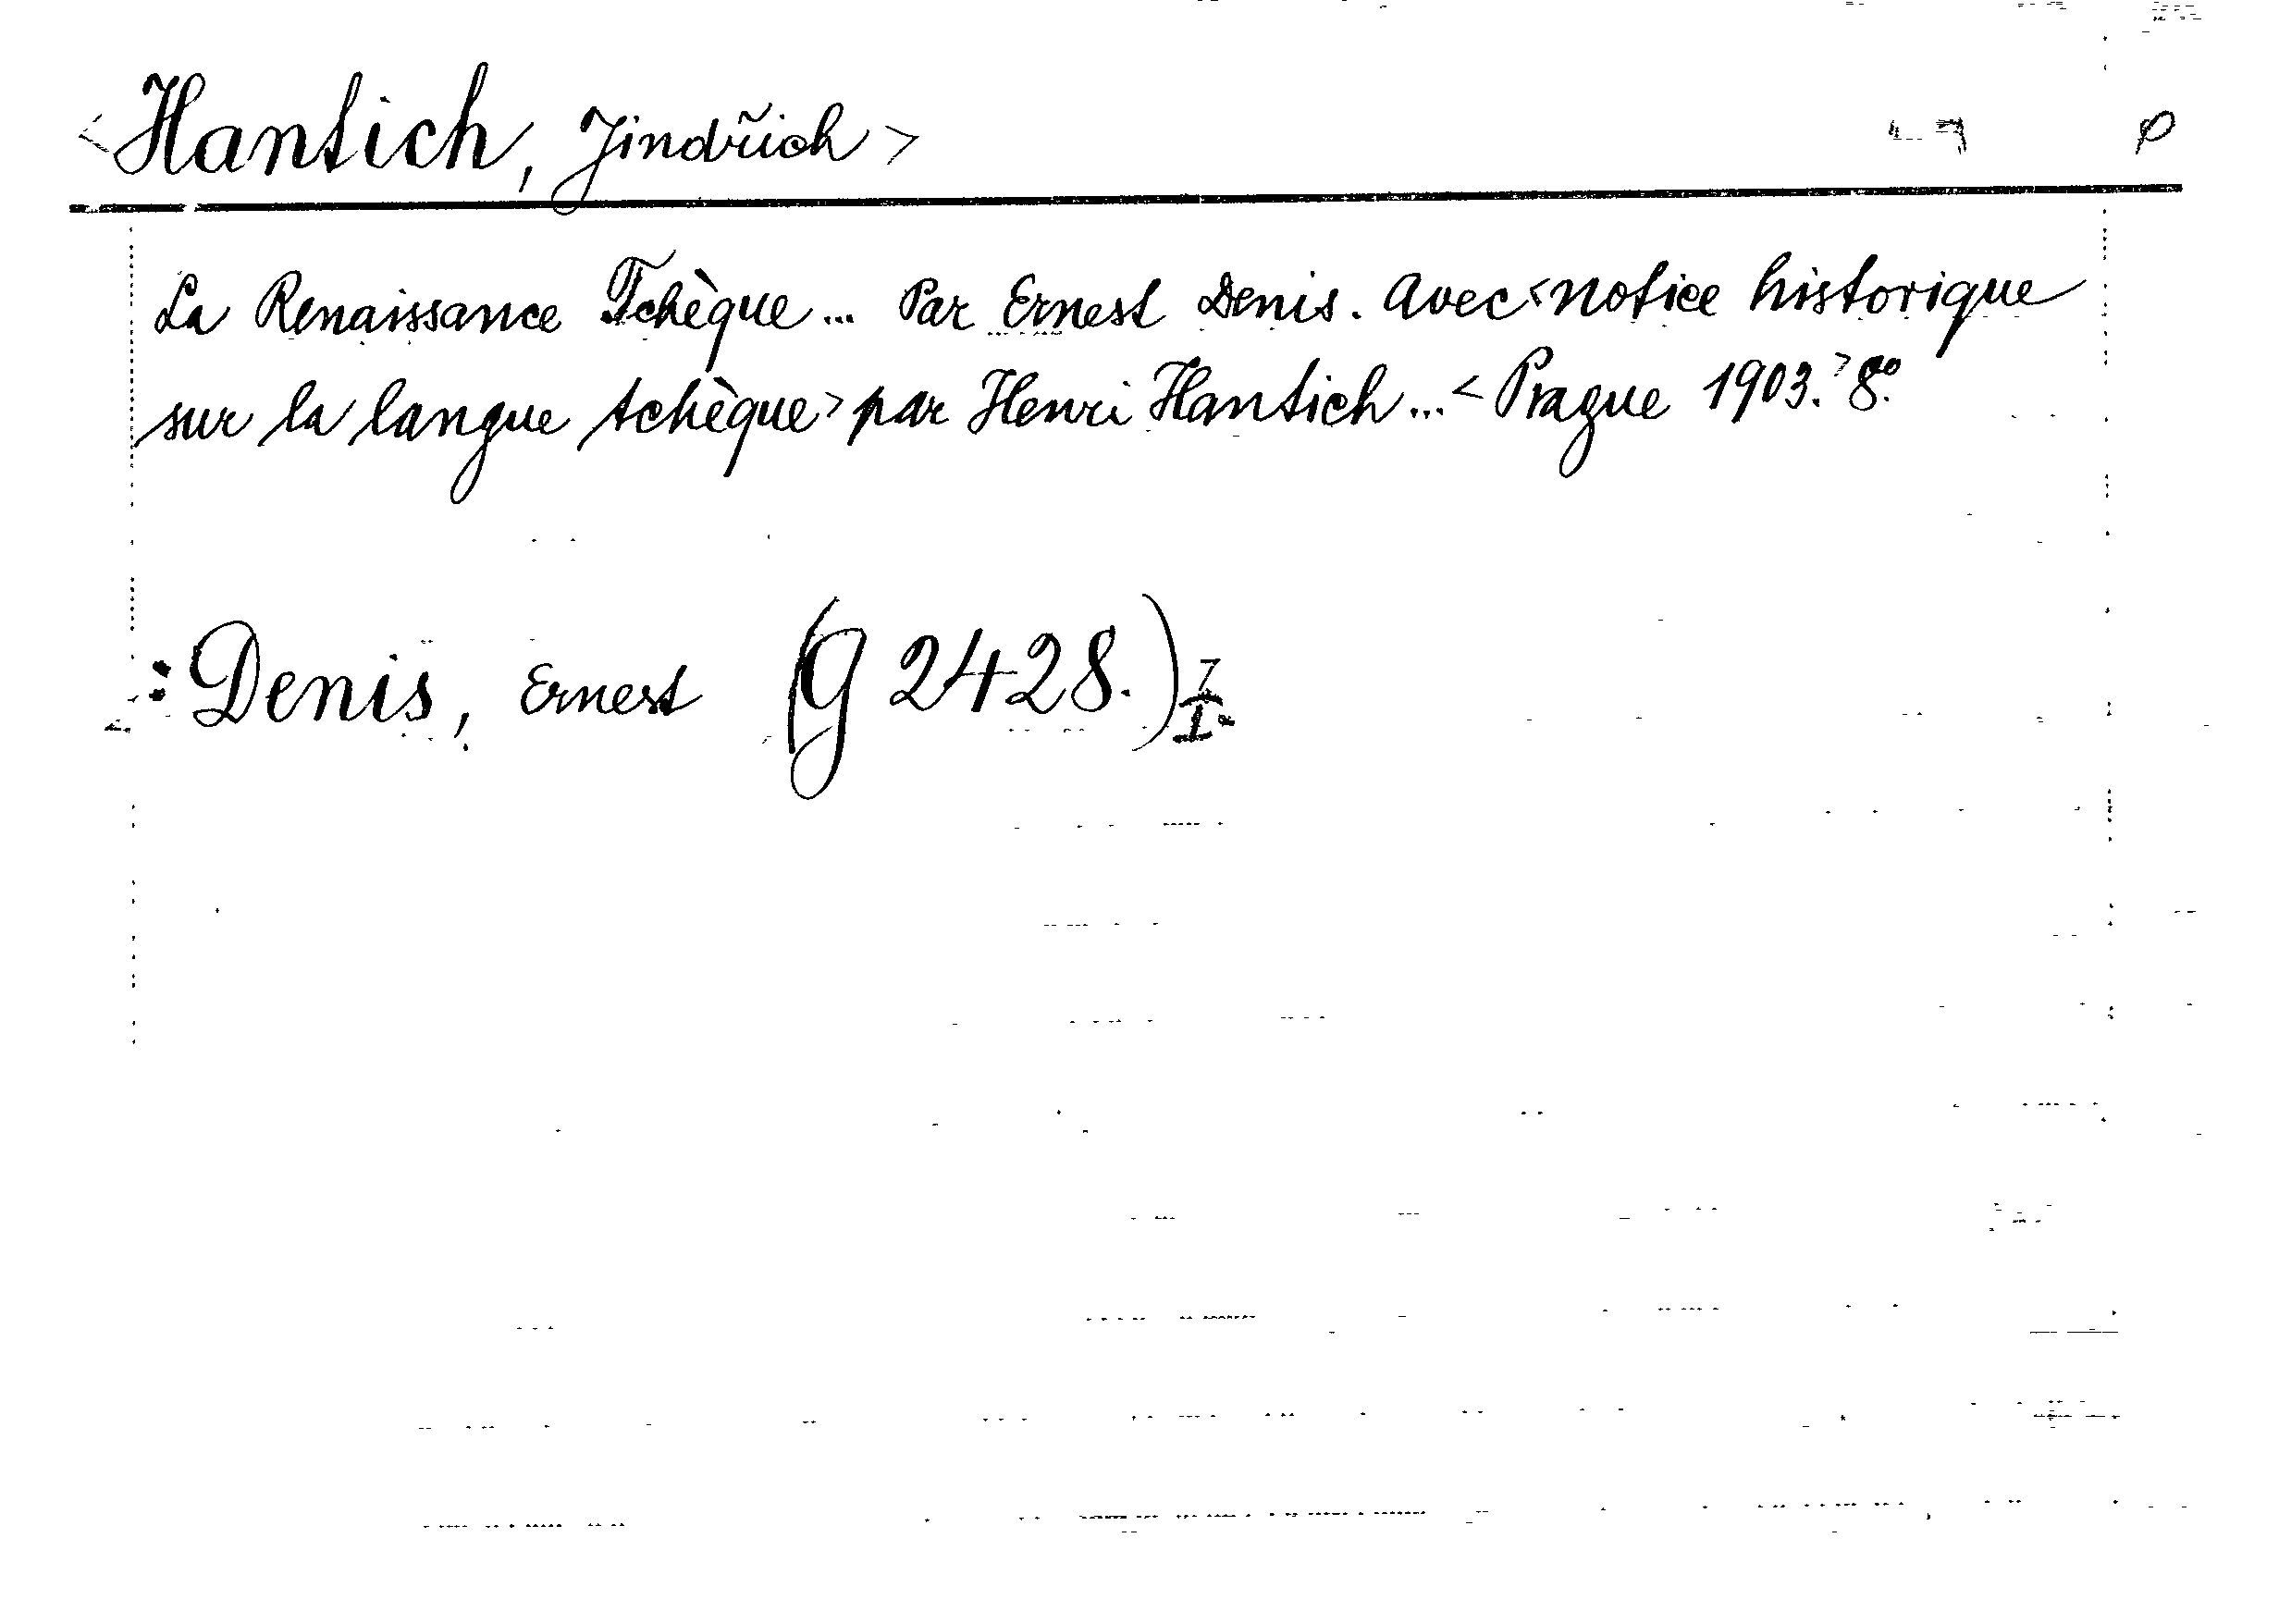 <Hantich, Jindřich>
La Renaissance Tchèque... Par Ernest Denis. Avec <notice historique
sur la langue tchèque> par Henri Hantich... <Prague 1903.> 8°.
: Denis, Ernest (g 2428.)